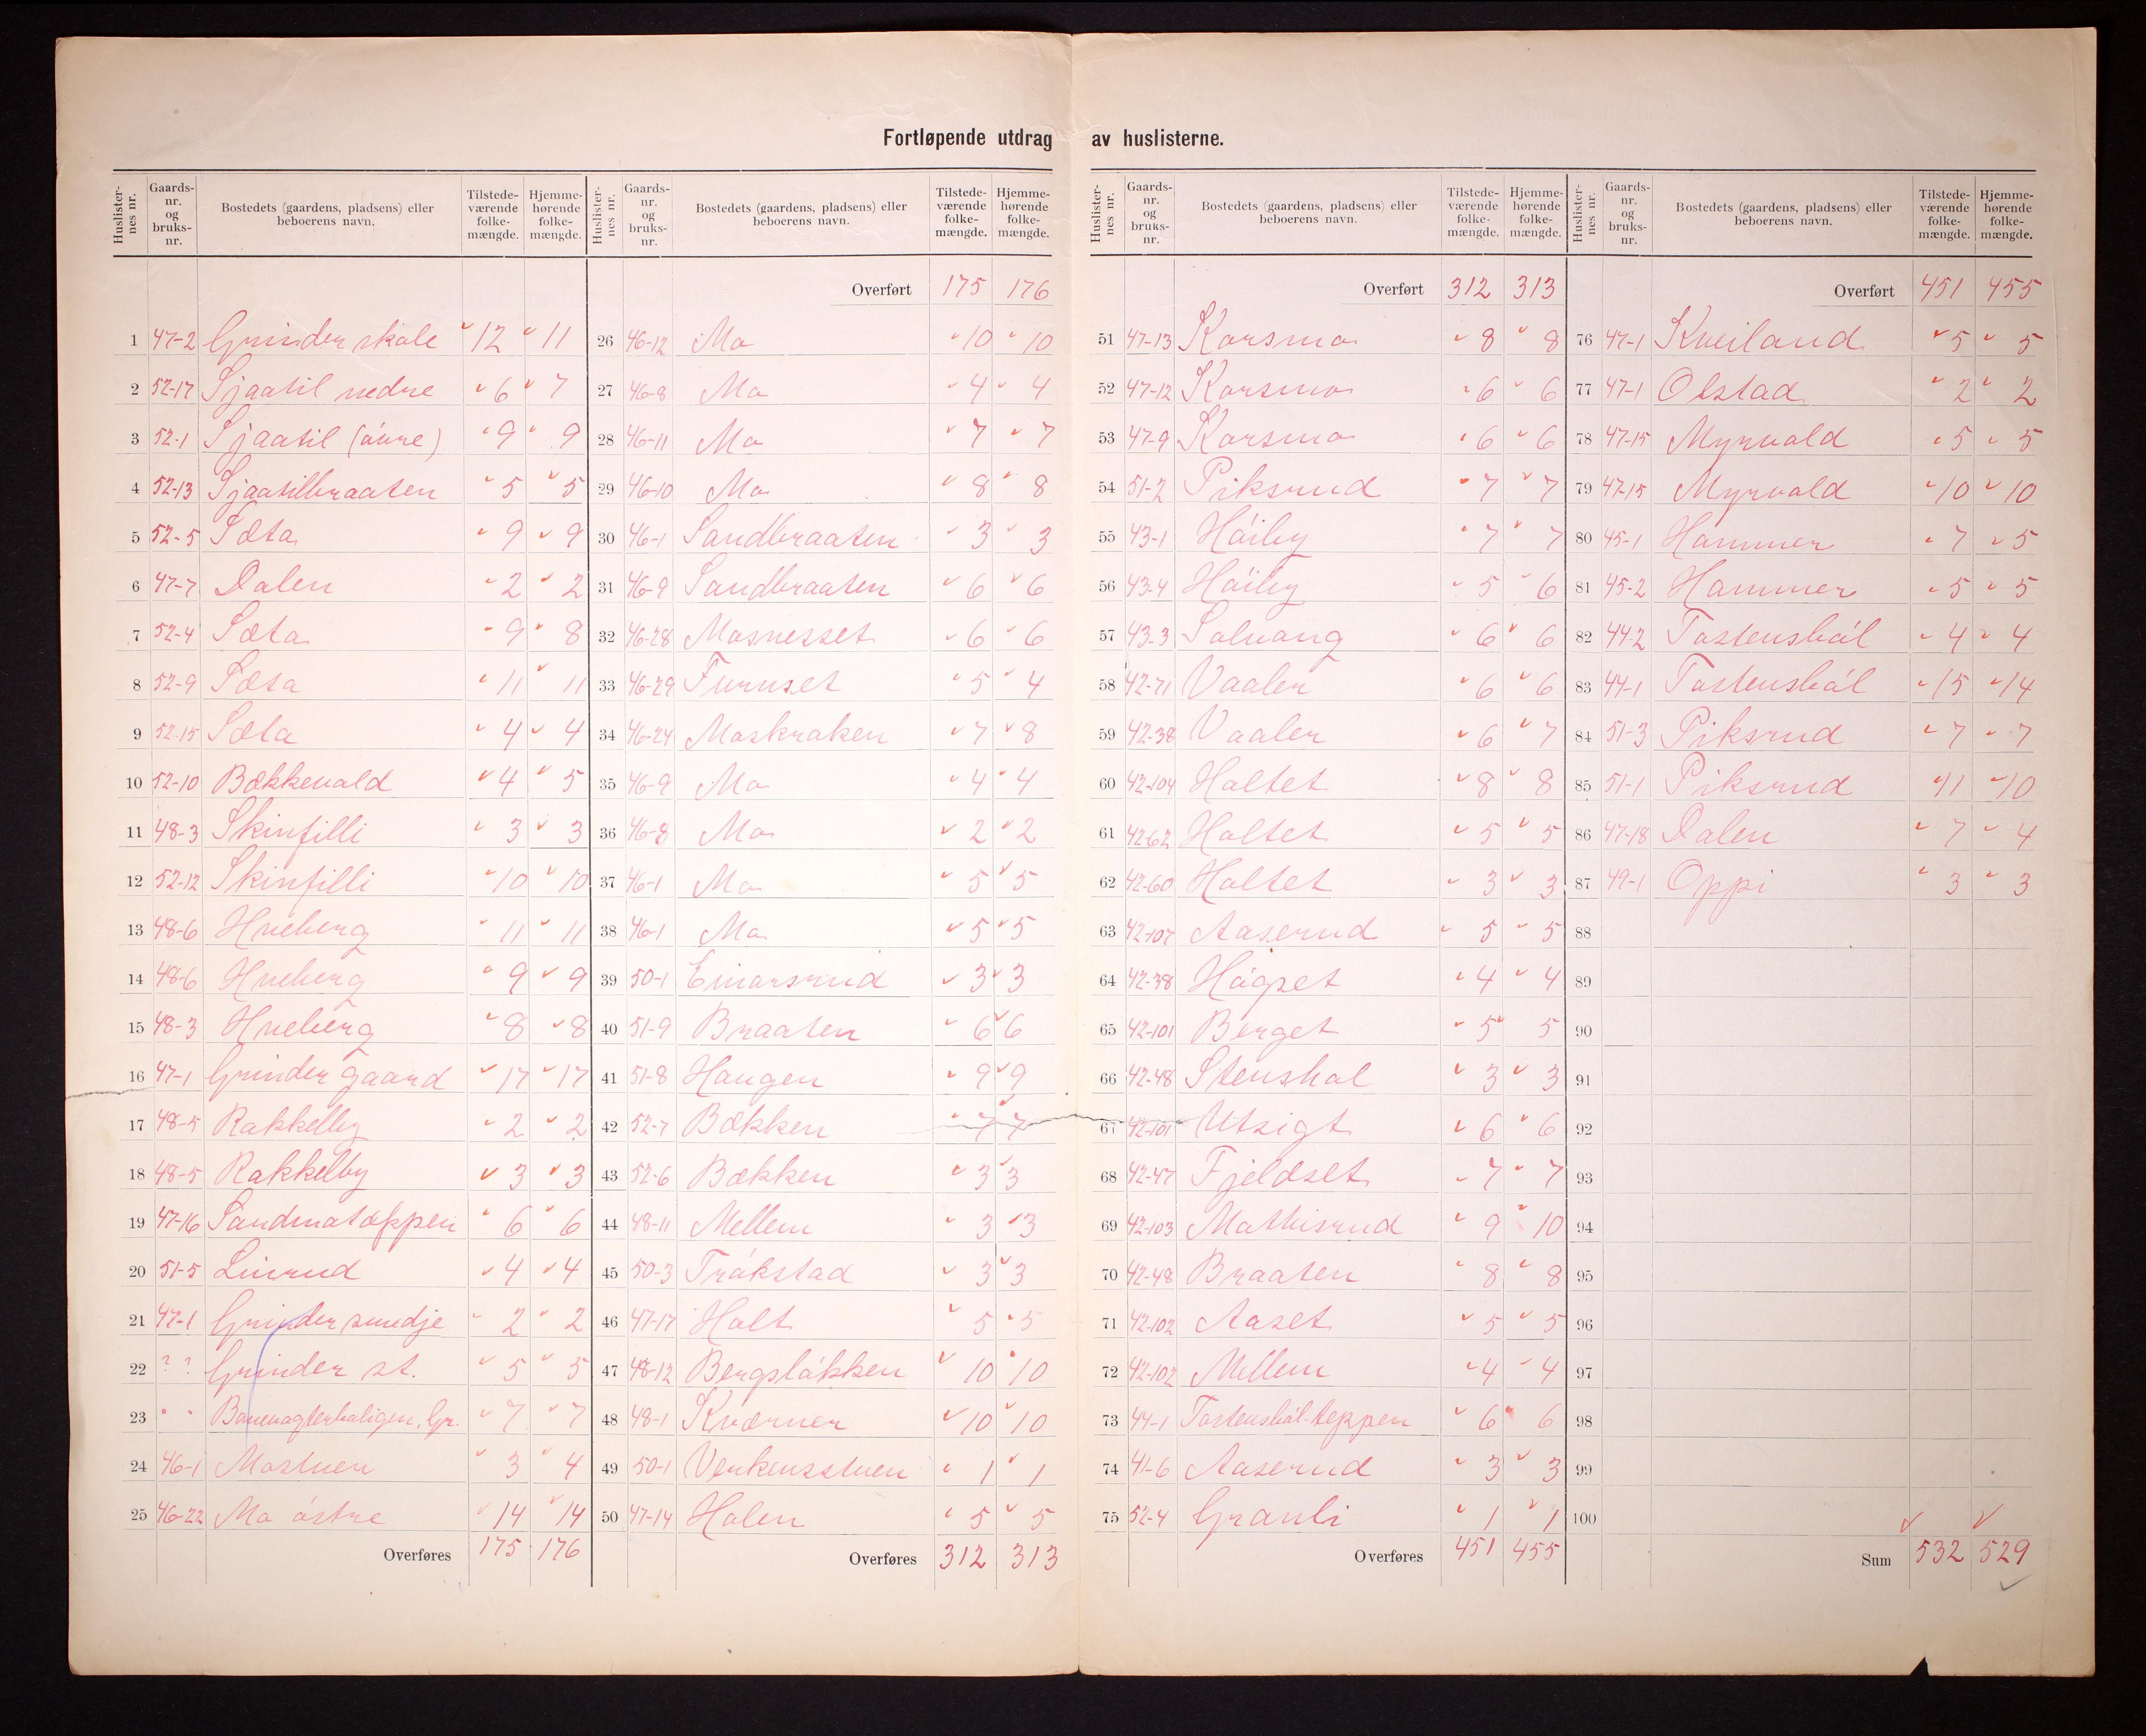 Fortløpende utdrag av huslisterne.
Huslisternes nr. Gaards-nr. og bruks-nr. Bostedets (gaardens, pladsens) eller beboerens navn. Tilstede-værende folke-mængde. Hjemme-hørende folke-mængde.
1 47-2 Grinder skole 12 11
2 52-17 Sjaatil nedre 6 7
3 52-1 Sjaatil (övre) 9 9
4 52-13 Sjaatilbraaten 5 5
5 52-5 Sæta 9 9
6 47-7 Dalen 2 2
7 52-4 Sæta 9 8
8 52-9 Sæta 11 11
9 52-15 Sæta 4 4
10 52-10 Bækkevold 4 5
11 48-3 Skinfilli 3 3
12 52-12 Skinfilli 10 10
13 48-6 Hveberg 11 11
14 48-6 Hveberg 9 9
15 48-3 Hveberg 8 8
16 47-1 Grinder gaard 17 17
17 48-5 Rakkelby 2 2
18 48-5 Rakkelby 3 3
19 47-16 Sandmotæppen 6 6
20 51-5 Linrud 4 4
21 47-1 Grinder smedje 2 2
22 ? ? Grinder st. 5 5
23 " " Banevogterboligen, Gr. 7 7
24 46-1 Mostuen 3 4
25 46-22 Mo östre 14 14
Overføres 175 176
Huslisternes nr. Gaards-nr. og bruks-nr. Bostedets (gaardens, pladsens) eller beboerens navn. Tilstede-værende folke-mængde. Hjemme-hørende folke-mængde.
Overført 175 176
26 46-12 Mo 10 10
27 46-8 Mo 4 4
28 46-11 Mo 7 7
29 46-10 Mo 8 8
30 46-1 Sandbraaten 3 3
31 46-9 Sandbraaten 6 6
32 46-28 Mosnesset 6 6
33 46-29 Furuset 5 4
34 46-24 Moskroken 7 8
35 46-9 Mo 4 4
36 46-8 Mo 2 2
37 46-1 Mo 5 5
38 46-1 Mo 5 5
39 50-1 Einarsrud 3 3
40 51-9 Braaten 6 6
41 51-8 Haugen 9 9
42 52-7 Bækken 7 7
43 52-6 Bækken 3 3
44 48-11 Mellem 3 3
45 50-3 Trökstad 3 3
46 47-17 Holt 5 5
47 48-12 Bergslökken 10 10
48 48-1 Kværner 10 10
49 50-1 Venkensstuen 1 1
50 47-14 Holen 5 5
Overføres 312 313
Huslisternes nr. Gaards-nr. og bruks-nr. Bostedets (gaardens, pladsens) eller beboerens navn. Tilstede-værende folke-mængde. Hjemme-hørende folke-mængde.
Overført 312 313
51 47-13 Korsmo 8 8
52 47-12 Korsmo 6 6
53 47-9 Korsmo 6 6
54 51-2 Piksrud 7 7
55 43-1 Höiby 7 7
56 43-4 Höiby 5 6
57 43-3 Solvang 6 6
58 42-71 Vaaler 6 6
59 42-38 Vaaler 6 7
60 42-104 Holtet 8 8
61 42-62 Holtet 5 5
62 42-60 Holtet 3 3
63 42-107 Aaserud 5 5
64 42-38 Högset 4 4
65 42-101 Berget 5 5
66 42-48 Stenshol 3 3
67 42-101 Utsigt 6 6
68 42-47 Fjeldset 7 7
69 42-103 Mathisrud 9 10
70 42-48 Braaten 8 8
71 42-102 Aaset 5 5
72 42-102 Mellem 4 4
73 44-1 Tostensböl-teppen 6 6
74 41-6 Aaserud 3 3
75 52-4 Granli 1 1
Overføres 451 455
Huslisternes nr. Gaards-nr. og bruks-nr. Bostedets (gaardens, pladsens) eller beboerens navn. Tilstede-værende folke-mængde. Hjemme-hørende folke-mængde.
Overført 451 455
76 47-1 Kveiland 5 5
77 47-1 Olstad 2 2
78 47-15 Myrvold 5 5
79 47-15 Myrvold 10 10
80 45-1 Hammer 7 5
81 45-2 Hammer 5 5
82 44-2 Tostensböl 4 4
83 44-1 Tostensböl 15 14
84 51-3 Piksrud 7 7
85 51-1 Piksrud 11 10
86 47-18 Dalen 7 4
87 49-1 Oppi 3 3
88
89
90
91
92
93
94
95
96
97
98
99
100
Sum 532 529